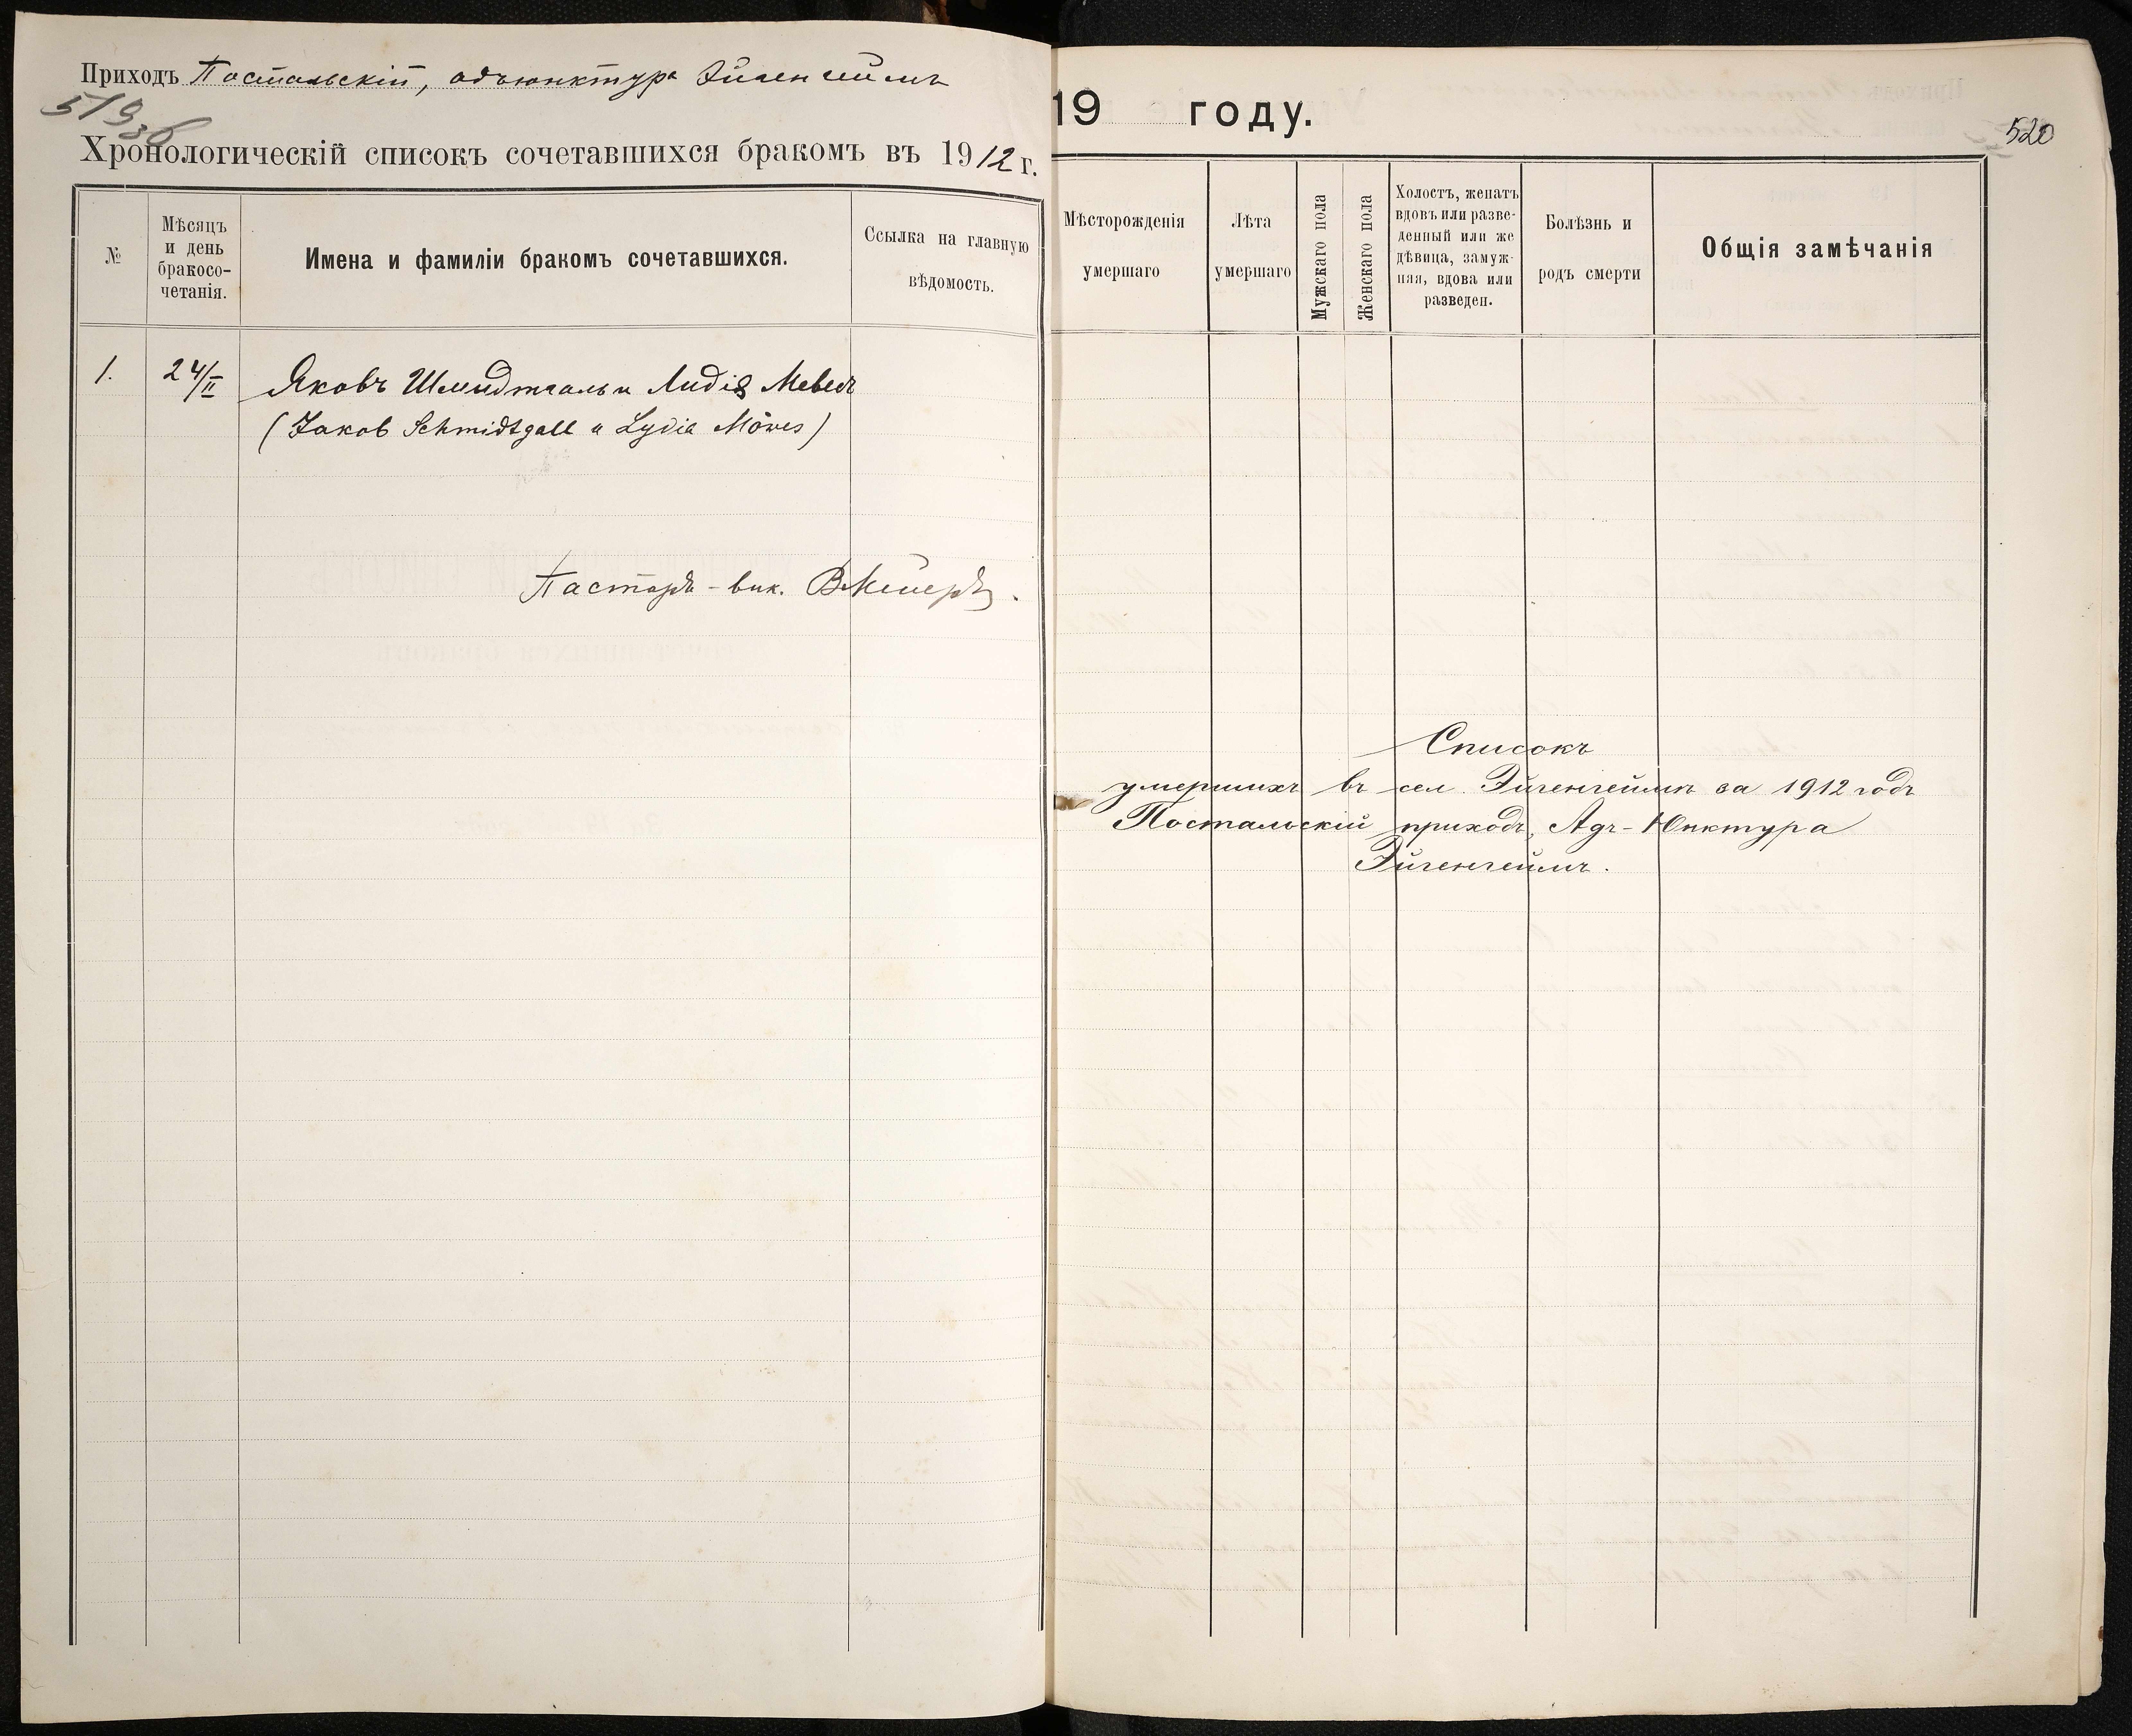 Приходъ Постальскій, адъюнктура Эйгенгеймъ
519 об
Хронологическій списокъ сочетавшихся бракомъ въ 1912 г.
№
Мѣсяцъ
и день
бракосо-
четанія.
Имена и фамиліи бракомъ сочетавшихся.
Ссылка на главную
вѣдомость.
1.
24/II
Яковъ Шмидтгаль и Лидія Мевесъ
(Jakob Schmidtgall u Lydia Möwes)
Пасторъ-вик. В Мейеръ.
19 году.
520
Мѣсторожденія
умершаго
Лѣта
умершаго
Мужскаго пола
Женскаго пола
Холостъ, женатъ
вдовъ или разве-
денный или же
дѣвица, замуж-
няя, вдова или
разведен.
Болѣзнь и
родъ смерти
Общія замѣчанія
Списокъ
умершихъ въ сел. Эйгенгеймъ за 1912 годъ
Постальскій приходъ, Адъ-Юнктура
Эйгенгеймъ.